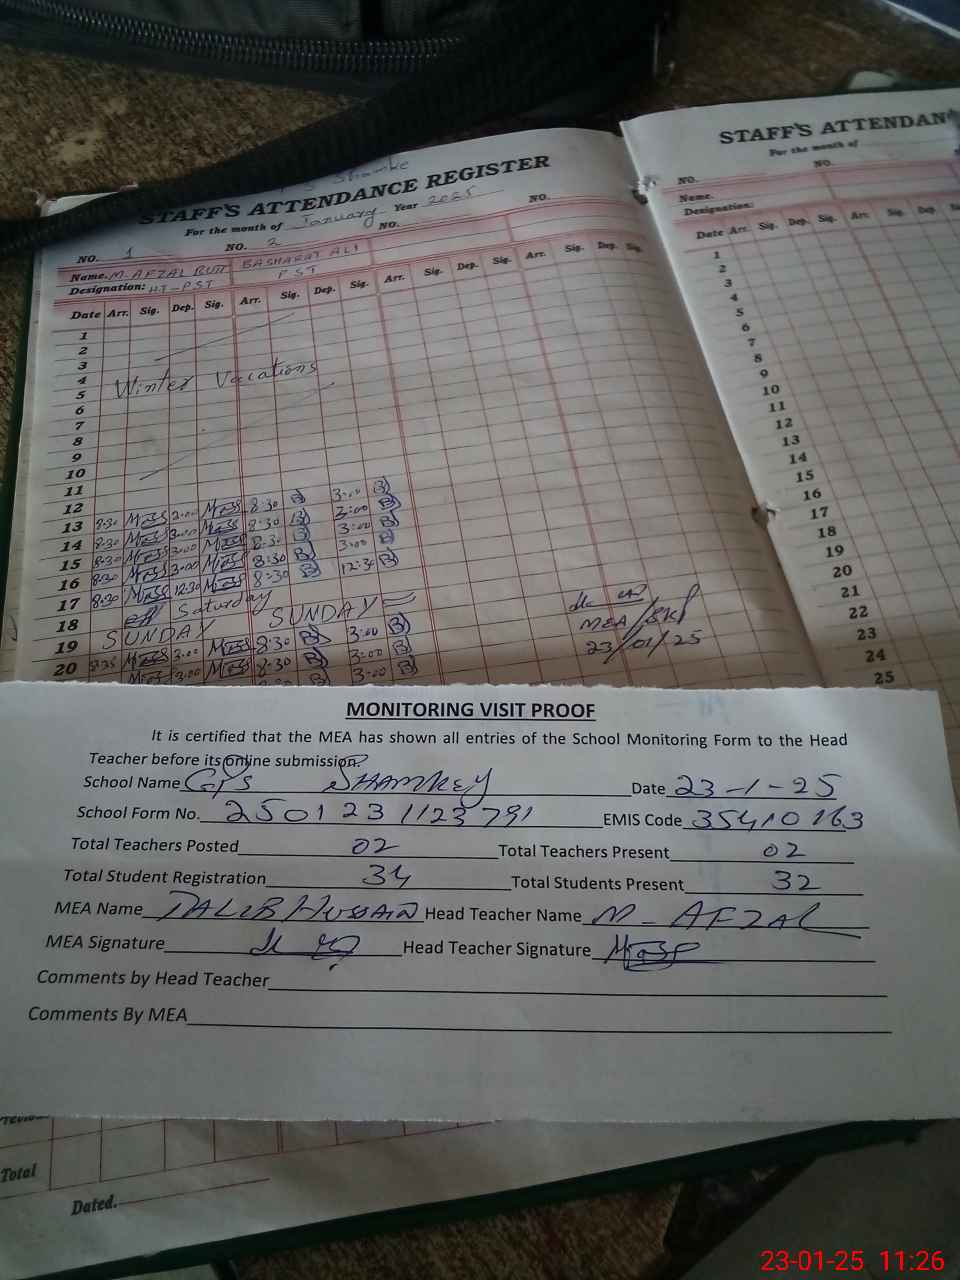 Shamke
STAFF'S ATTENDANCE REGISTER
For the month of January Year 2025
NO. 1 NO. 2 NO. NO.
Name. M-AFZAL BUTT BASHARAT ALI
Designation: HT-PST PST
Date Arr. Sig. Dep. Sig. Arr. Sig. Dep. Sig. Arr. Sig. Dep. Sig. Arr. Sig. Dep. Sig.
1
2
3
4 Winter Vacations
5
6
7
8
9
10
11
12
13 8:30 3:00 8:30 3:00
14 8:30 3:00 8:30 3:00
15 8:30 3:00 8:30 3:00
16 8:30 3:00 8:30 3:00
17 8:30 12:30 8:30 12:30
18 Saturday
19 SUNDAY SUNDAY
20 8:25 3:00 8:30 3:00
3:00 8:30 3:00
3:00
MEA/SKP
23/01/25
STAFF'S ATTENDAN
For the month of
NO. NO.
Name.
Designation:
Date Arr. Sig. Dep. Sig. Arr. Sig. Dep. Sig.
1
2
3
4
5
6
7
8
9
10
11
12
13
14
15
16
17
18
19
20
21
22
23
24
25
MONITORING VISIT PROOF
It is certified that the MEA has shown all entries of the School Monitoring Form to the Head
Teacher before its online submission.
School Name GPS SHAMKEY Date 23-1-25
School Form No. 2501231123791 EMIS Code 35410163
Total Teachers Posted 02 Total Teachers Present 02
Total Student Registration 34 Total Students Present 32
MEA Name TALIB HUSSAIN Head Teacher Name M-AFZAL
MEA Signature Head Teacher Signature
Comments by Head Teacher
Comments By MEA
Total
Dated.
23-01-25 11:26